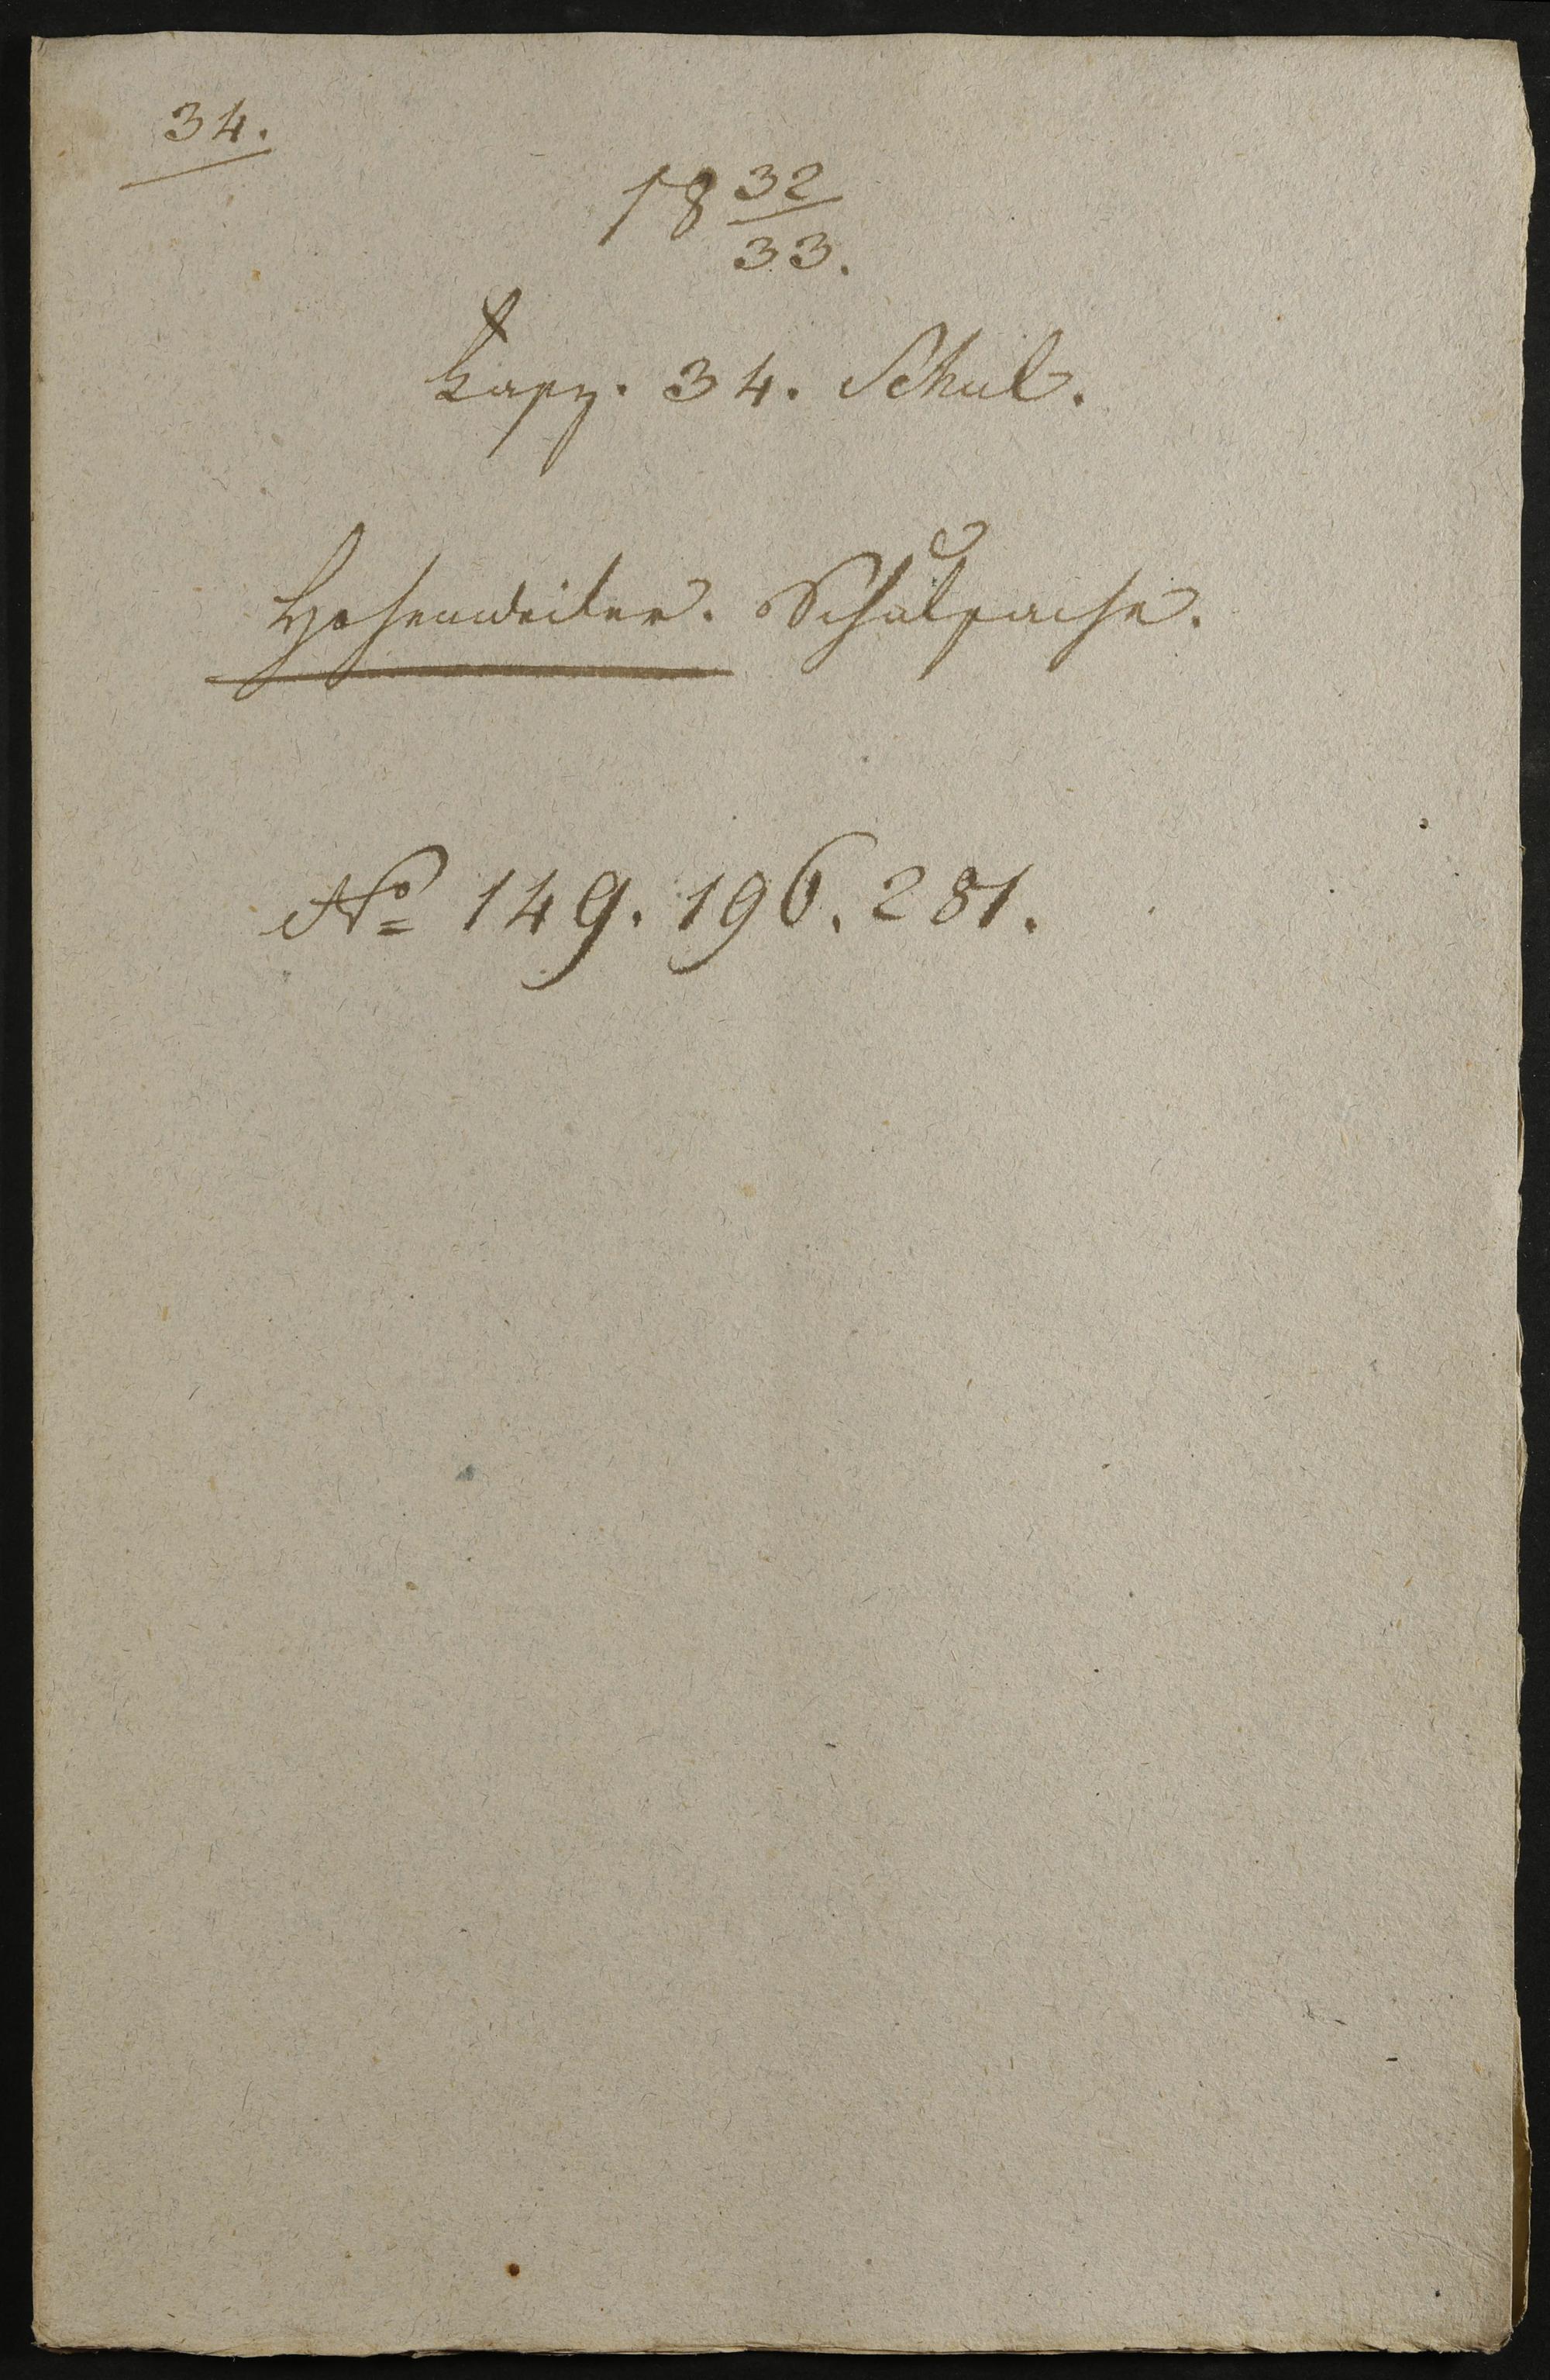 34.
18 32/33.
Fasz. 34. Schul.
Hohenweiler. Schulsache.
No 149. 196. 281.